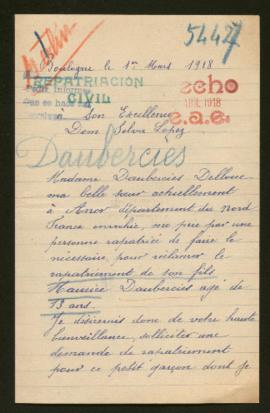 54424
Boulogne le 1er Mars 1918
REPATRIACIÓN
CIVIL
echo
ABR. 1918
e.a.e.
Son Excellence
Dom Silva Lopez
Dauberciès
Madame Dauberciès Delloue
ma belle sœur actuellement
à Anor département du Nord
France envahie, me prie par une
personne rapatriée de faire le
nécessaire, pour réclamer le
rapatriement de son fils
Maurice Dauberciès age de
13 ans.
Je désirerais donc de votre haute
bienveillance, solliciter une
demande de rapatriement
pour ce petit garçon dont je